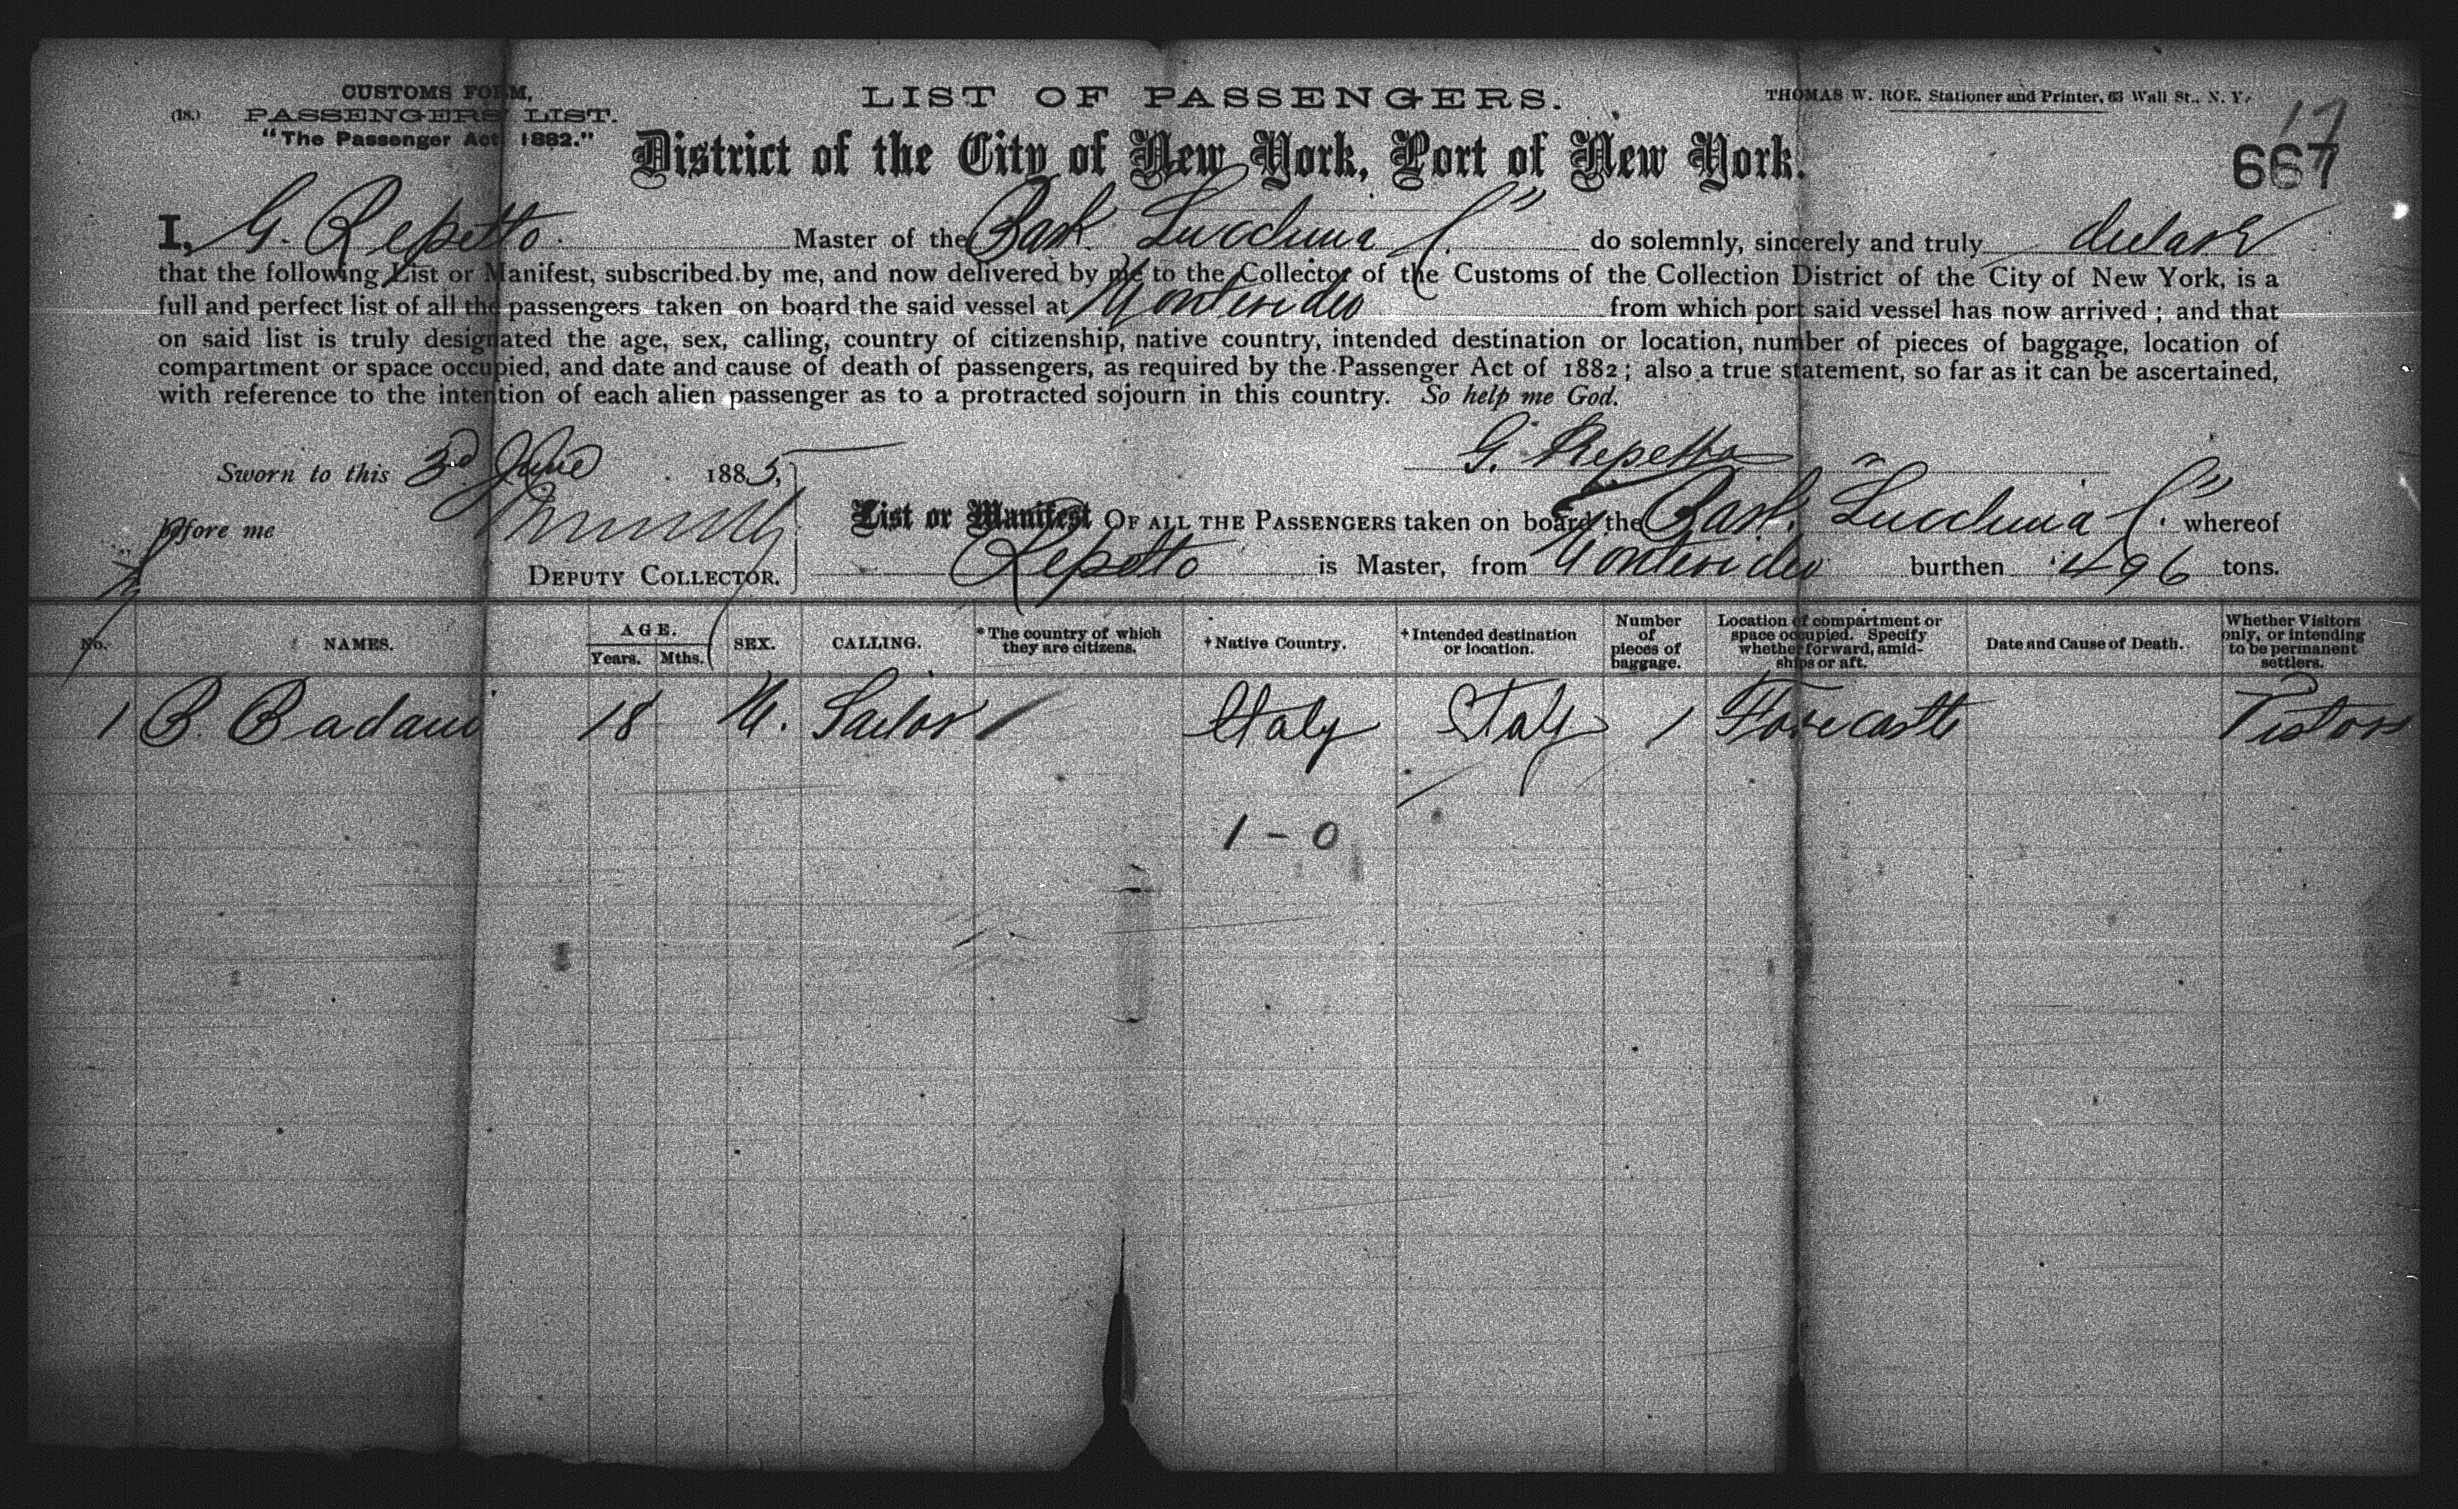 CUSTOMS FORM,
(18.) PASSENGERS LIST.
"The Passenger Act, 1882."
LIST OF PASSENGERS.
THOMAS W. ROE, Stationer and Printer, 63 Wall St., N. Y.
17
667
District of the City of New York, Port of New York.
I, G. Repetto Master of the Bark "Lucchina C." do solemnly, sincerely and truly declare
that the following List or Manifest, subscribed by me, and now delivered by me to the Collector of the Customs of the Collection District of the City of New York, is a
full and perfect list of all the passengers taken on board the said vessel at Montevideo from which port said vessel has now arrived; and that
on said list is truly designated the age, sex, calling, country of citizenship, native country, intended destination or location, number of pieces of baggage, location of
compartment or space occupied, and date and cause of death of passengers, as required by the Passenger Act of 1882; also a true statement, so far as it can be ascertained,
with reference to the intention of each alien passenger as to a protracted sojourn in this country. So help me God.
Sworn to this 3d June 1885,
G. Repetto
before me
DEPUTY COLLECTOR.
List or Manifest OF ALL THE PASSENGERS taken on board the Bark "Lucchina C." whereof
Repetto is Master, from Montevideo burthen 496 tons.
No. NAMES. AGE. Years. Mths. SEX. CALLING. *The country of which they are citizens. †Native Country. †Intended destination or location. Number of pieces of baggage. Location of compartment or space occupied. Specify whether forward, amidships or aft. Date and Cause of Death. Whether Visitors only, or intending to be permanent settlers.
1 B. Badani 18 M. Sailor / Italy Italy 1 Forecastle Vistors
1 - 0